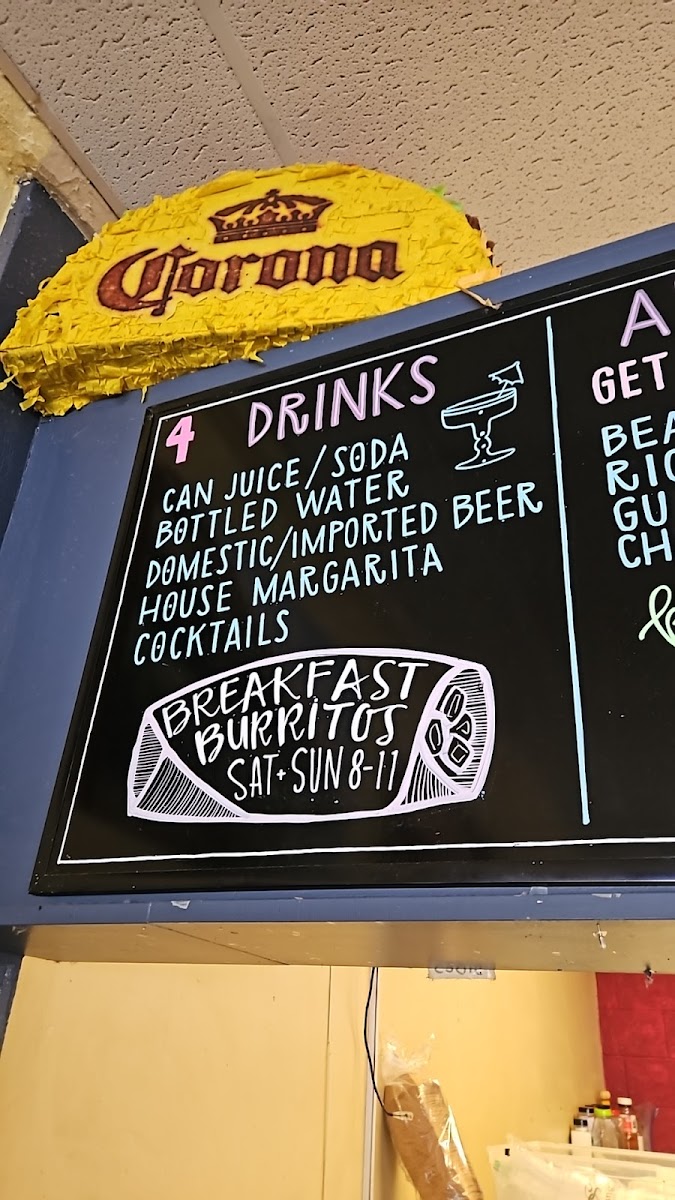 Corona
4 DRINKS
CAN JUICE/SODA
BOTTLED WATER
DOMESTIC/IMPORTED BEER
HOUSE MARGARITA
COCKTAILS
BREAKFAST
BURRITOS
SAT+SUN 8-11
GET